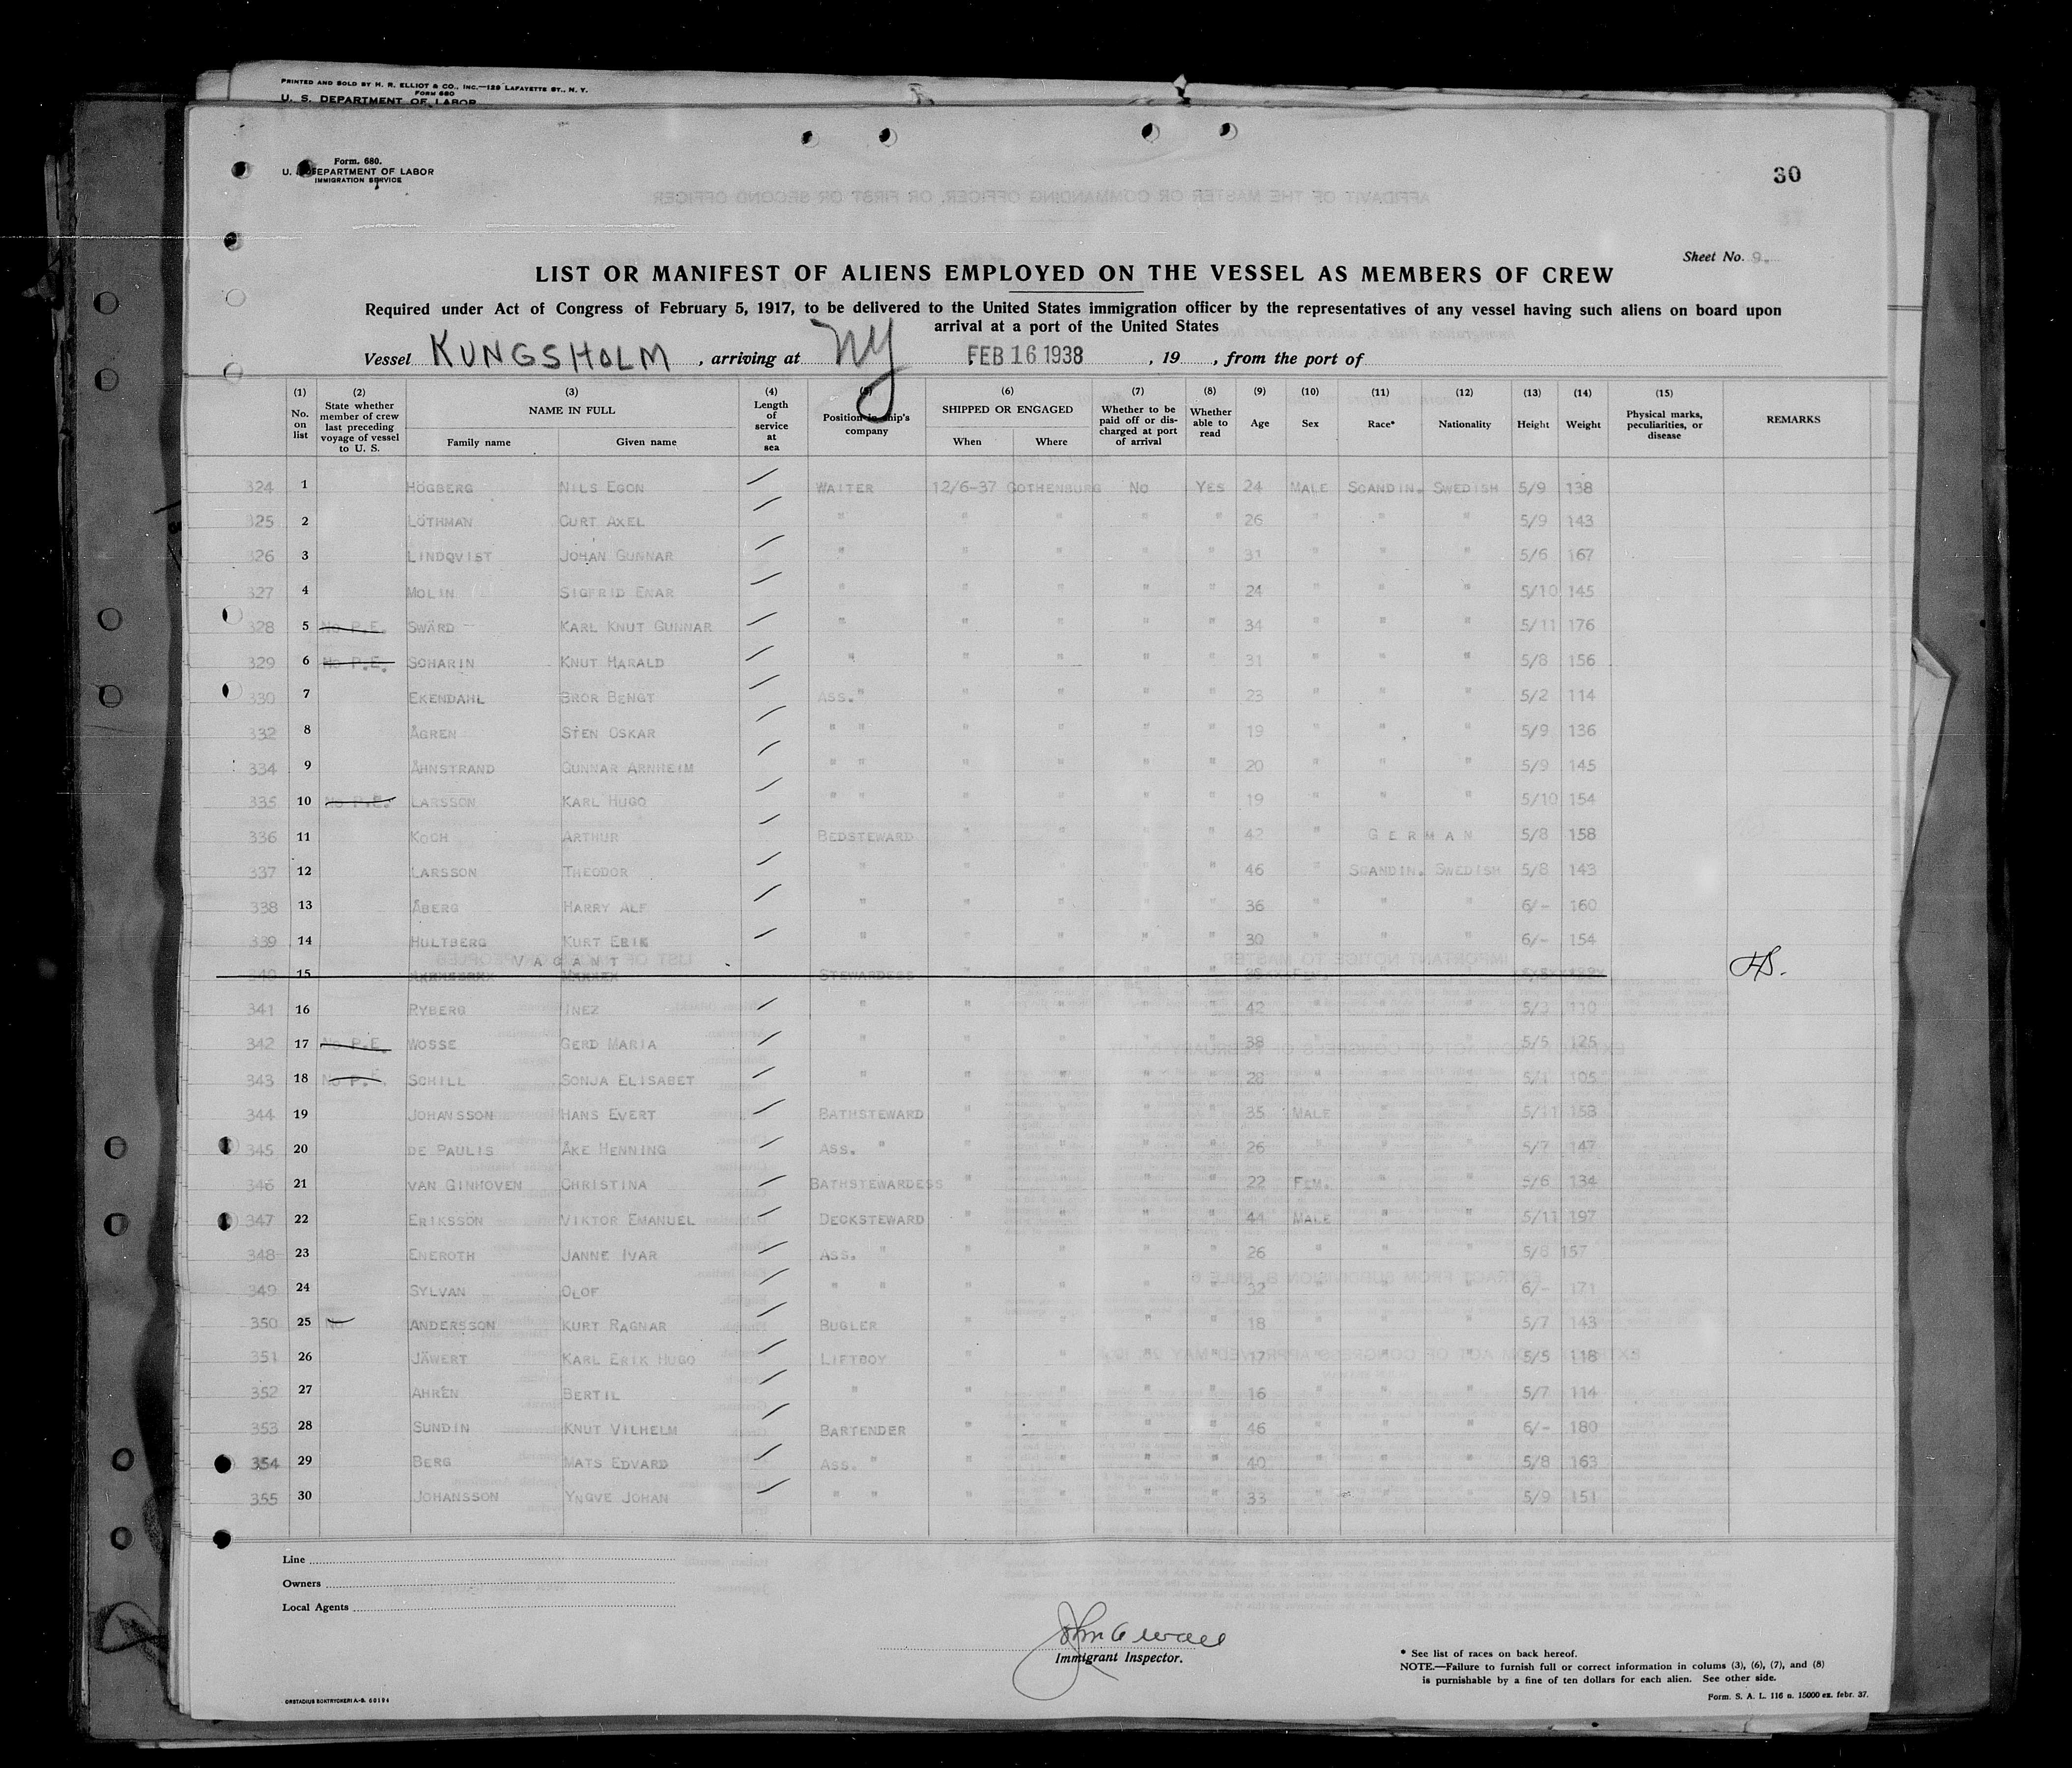 PRINTED AND SOLD BY H. R. ELLIOT & CO., INC.—129 LAFAYETTE ST., N. Y.
FORM 680
U. S. DEPARTMENT OF LABOR
Form. 680.
U. S. DEPARTMENT OF LABOR
IMMIGRATION SERVICE
30
Sheet No. 9.
LIST OR MANIFEST OF ALIENS EMPLOYED ON THE VESSEL AS MEMBERS OF CREW
Required under Act of Congress of February 5, 1917, to be delivered to the United States immigration officer by the representatives of any vessel having such aliens on board upon
arrival at a port of the United States
Vessel KUNGSHOLM, arriving at NY FEB 16 1938, 19 , from the port of
(1) (2) (3) (4) (5) (6) (7) (8) (9) (10) (11) (12) (13) (14) (15)
No. on list State whether member of crew last preceding voyage of vessel to U. S. NAME IN FULL Family name Given name Length of service at sea Position in ship's company SHIPPED OR ENGAGED When Where Whether to be paid off or discharged at port of arrival Whether able to read Age Sex Race* Nationality Height Weight Physical marks, peculiarities, or disease REMARKS
324 1 HÖGBERG NILS EGON WAITER 12/6-37 GOTHENBURG NO YES 24 MALE SCANDIN. SWEDISH 5/9 138
325 2 LÖTHMAN CURT AXEL " " " " " 26 " " " 5/9 143
326 3 LINDQVIST JOHAN GUNNAR " " " " " 31 " " " 5/6 167
327 4 MOLIN SIGFRID ENAR " " " " " 24 " " " 5/10 145
328 5 No P.E. SWÄRD KARL KNUT GUNNAR " " " " " 34 " " " 5/11 176
329 6 No P.E. SCHARIN KNUT HARALD " " " " " 31 " " " 5/8 156
330 7 EKENDAHL BROR BENGT ASS. " " " " " 23 " " " 5/2 114
332 8 ÅGREN STEN OSKAR " " " " " " 19 " " " 5/9 136
334 9 ÅHNSTRAND GUNNAR ARNHEIM " " " " " " 20 " " " 5/9 145
335 10 No P.E. LARSSON KARL HUGO " " " " " " 19 " " " 5/10 154
336 11 KOCH ARTHUR BEDSTEWARD " " " " 42 " GERMAN 5/8 158
337 12 LARSSON THEODOR " " " " " 46 " SCANDIN. SWEDISH 5/8 143
338 13 ÅBERG HARRY ALF " " " " " 36 " " " 6/- 160
339 14 HULTBERG KURT ERIK " " " " " 30 " " " 6/- 154
VACANT
340 15 STEWARDESS FEM.
341 16 RYBERG INEZ " " " " " 42 " " " 5/3 110
342 17 No P.E. WOSSE GERD MARIA " " " " " 38 " " " 5/5 125
343 18 No P.E. SCHILL SONJA ELISABET " " " " " 28 " " " 5/1 105
344 19 JOHANSSON HANS EVERT BATHSTEWARD " " " " 35 MALE " " 5/11 158
345 20 DE PAULIS ÅKE HENNING ASS. " " " " " 26 " " " 5/7 147
346 21 VAN GINHOVEN CHRISTINA BATHSTEWARDESS " " " " 22 FEM. " " 5/6 134
347 22 ERIKSSON VIKTOR EMANUEL DECKSTEWARD " " " " 44 MALE " " 5/11 197
348 23 ENEROTH JANNE IVAR ASS. " " " " " 26 " " " 5/8 157
349 24 SYLVAN OLOF " " " " " " 32 " " " 6/- 171
350 25 No ANDERSSON KURT RAGNAR BUGLER " " " " 18 " " " 5/7 143
351 26 JÄWERT KARL ERIK HUGO LIFTBOY " " " " 17 " " " 5/5 118
352 27 AHRÉN BERTIL " " " " " 16 " " " 5/7 114
353 28 SUNDIN KNUT VILHELM BARTENDER " " " " 46 " " " 6/- 180
354 29 BERG MATS EDVARD ASS. " " " " " 40 " " " 5/8 163
355 30 JOHANSSON YNGVE JOHAN " " " " " " 33 " " " 5/9 151
Line
Owners
Local Agents
Immigrant Inspector.
* See list of races on back hereof.
NOTE.—Failure to furnish full or correct information in colums (3), (6), (7), and (8)
is punishable by a fine of ten dollars for each alien. See other side.
ORSTADIUS BOKTRYCKERI A.-B. 60194
Form. S. A. L. 116 a. 15000 ex. febr. 37.